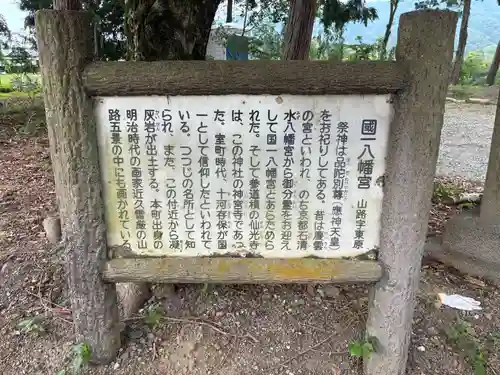 國八幡宮 山路字東原
祭神は品陀別尊(應神天皇)
をお祀りしてある。昔は慶雲
の宮といわれ、のち京都石清
水八幡宮から御分霊をお迎え
して国一八幡宮とあらためら
れた。そして参道横の仙光寺
は、この神社の神宮寺であっ
た。室町時代、十河存保が国
一として信仰したといわれて
いる。つつじの名所として知
られ、また、この付近から凝
灰岩が出土する。本町出身の
明治時代の画家近久雲厳の山
路五景の中にも画かれている